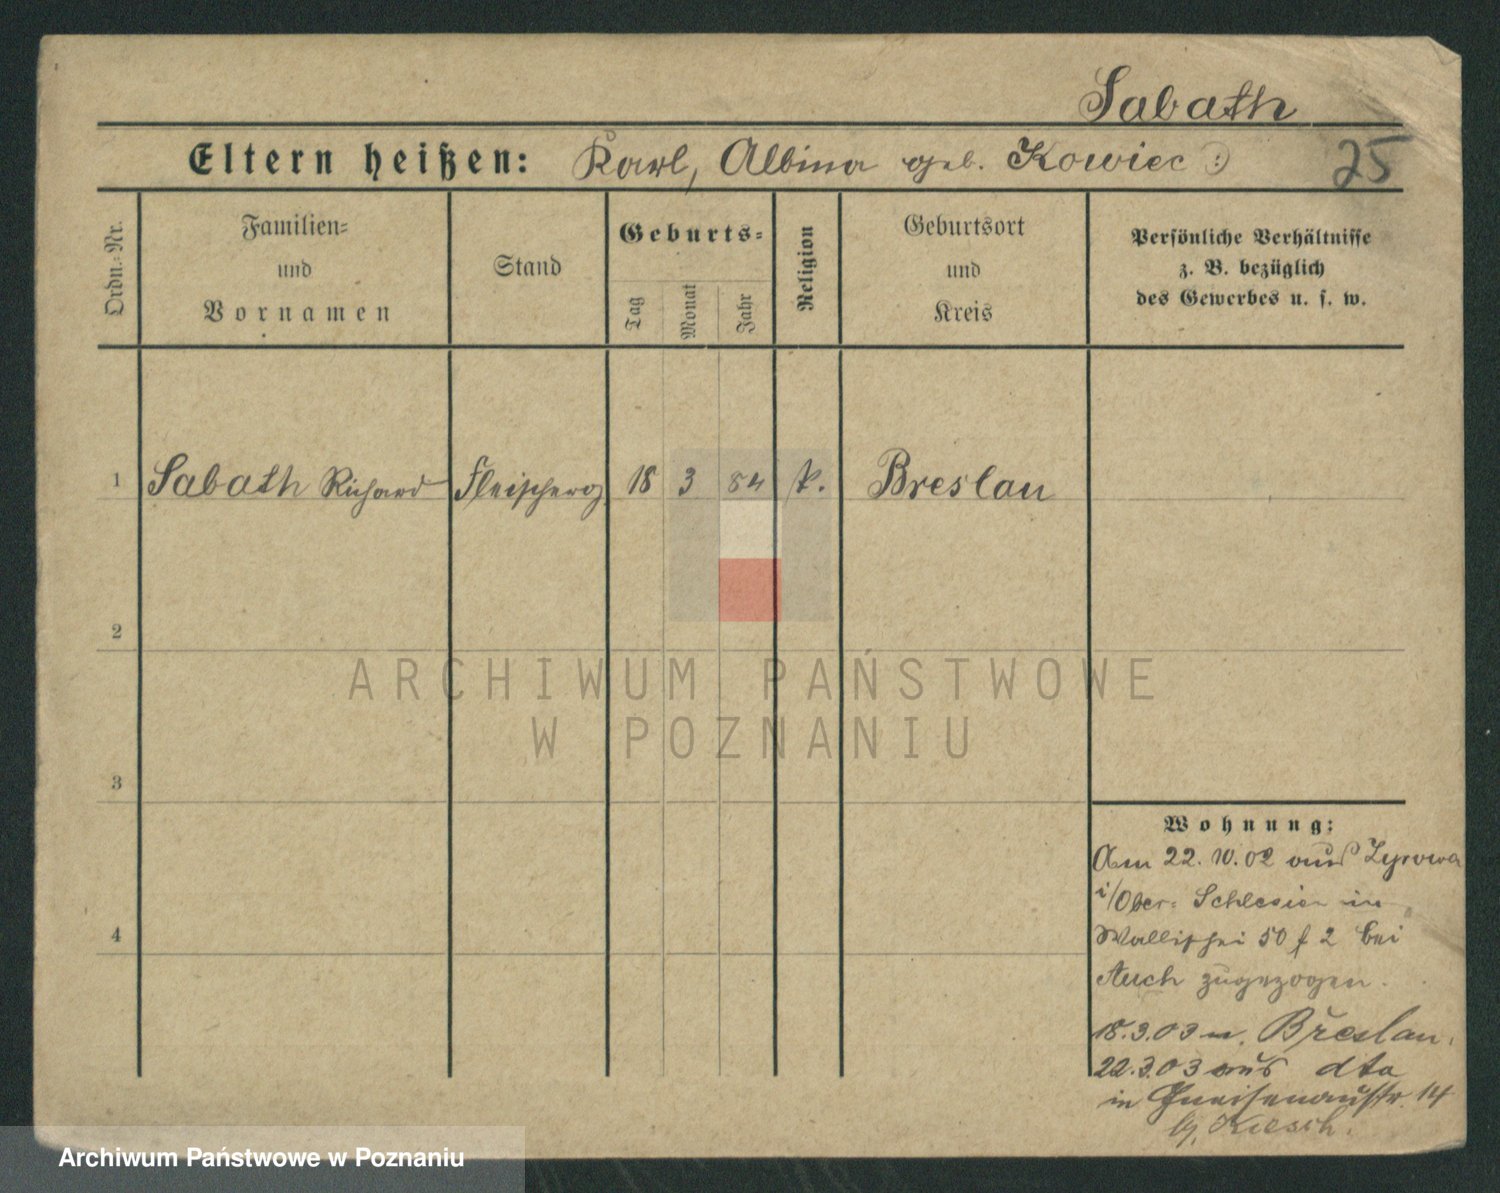 Sabath
Eltern heißen: Karl, Albina geb. Kowiec :)
25
Ordn.-Nr.
Familien-
und
Vornamen
Stand
Geburts-
Tag
Monat
Jahr
Religion
Geburtsort
und
Kreis
Persönliche Verhältnisse
z. B. bezüglich
des Gewerbes u. s. w.
1 Sabath Richard Fleischerg. 18 3 84 k. Breslau
2
3
4
ARCHIWUM PAŃSTWOWE
W POZNANIU
Wohnung:
Am 22.10.02 aus Zyrowa
i/Ober-Schlesien in
Wallischei 50 f 2 bei
Auch zugezogen.
18.3.03 n. Breslau.
22.3.03 aus dta
in Gneisenaustr. 14
Archiwum Państwowe w Poznaniu